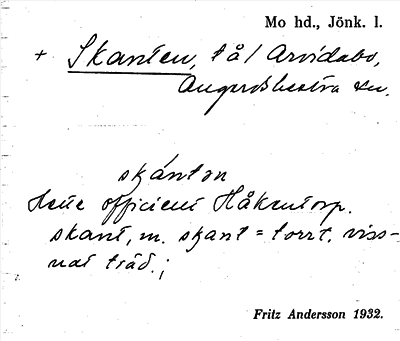 Mo hd., Jönk. l.
+ Skanten, t å l Arvidabo,
Angerdshestra sn.
skánton
Heue officient Håkentorp.
skant, m. skant = torrt, viss-
nat träd.;
Fritz Andersson 1932.